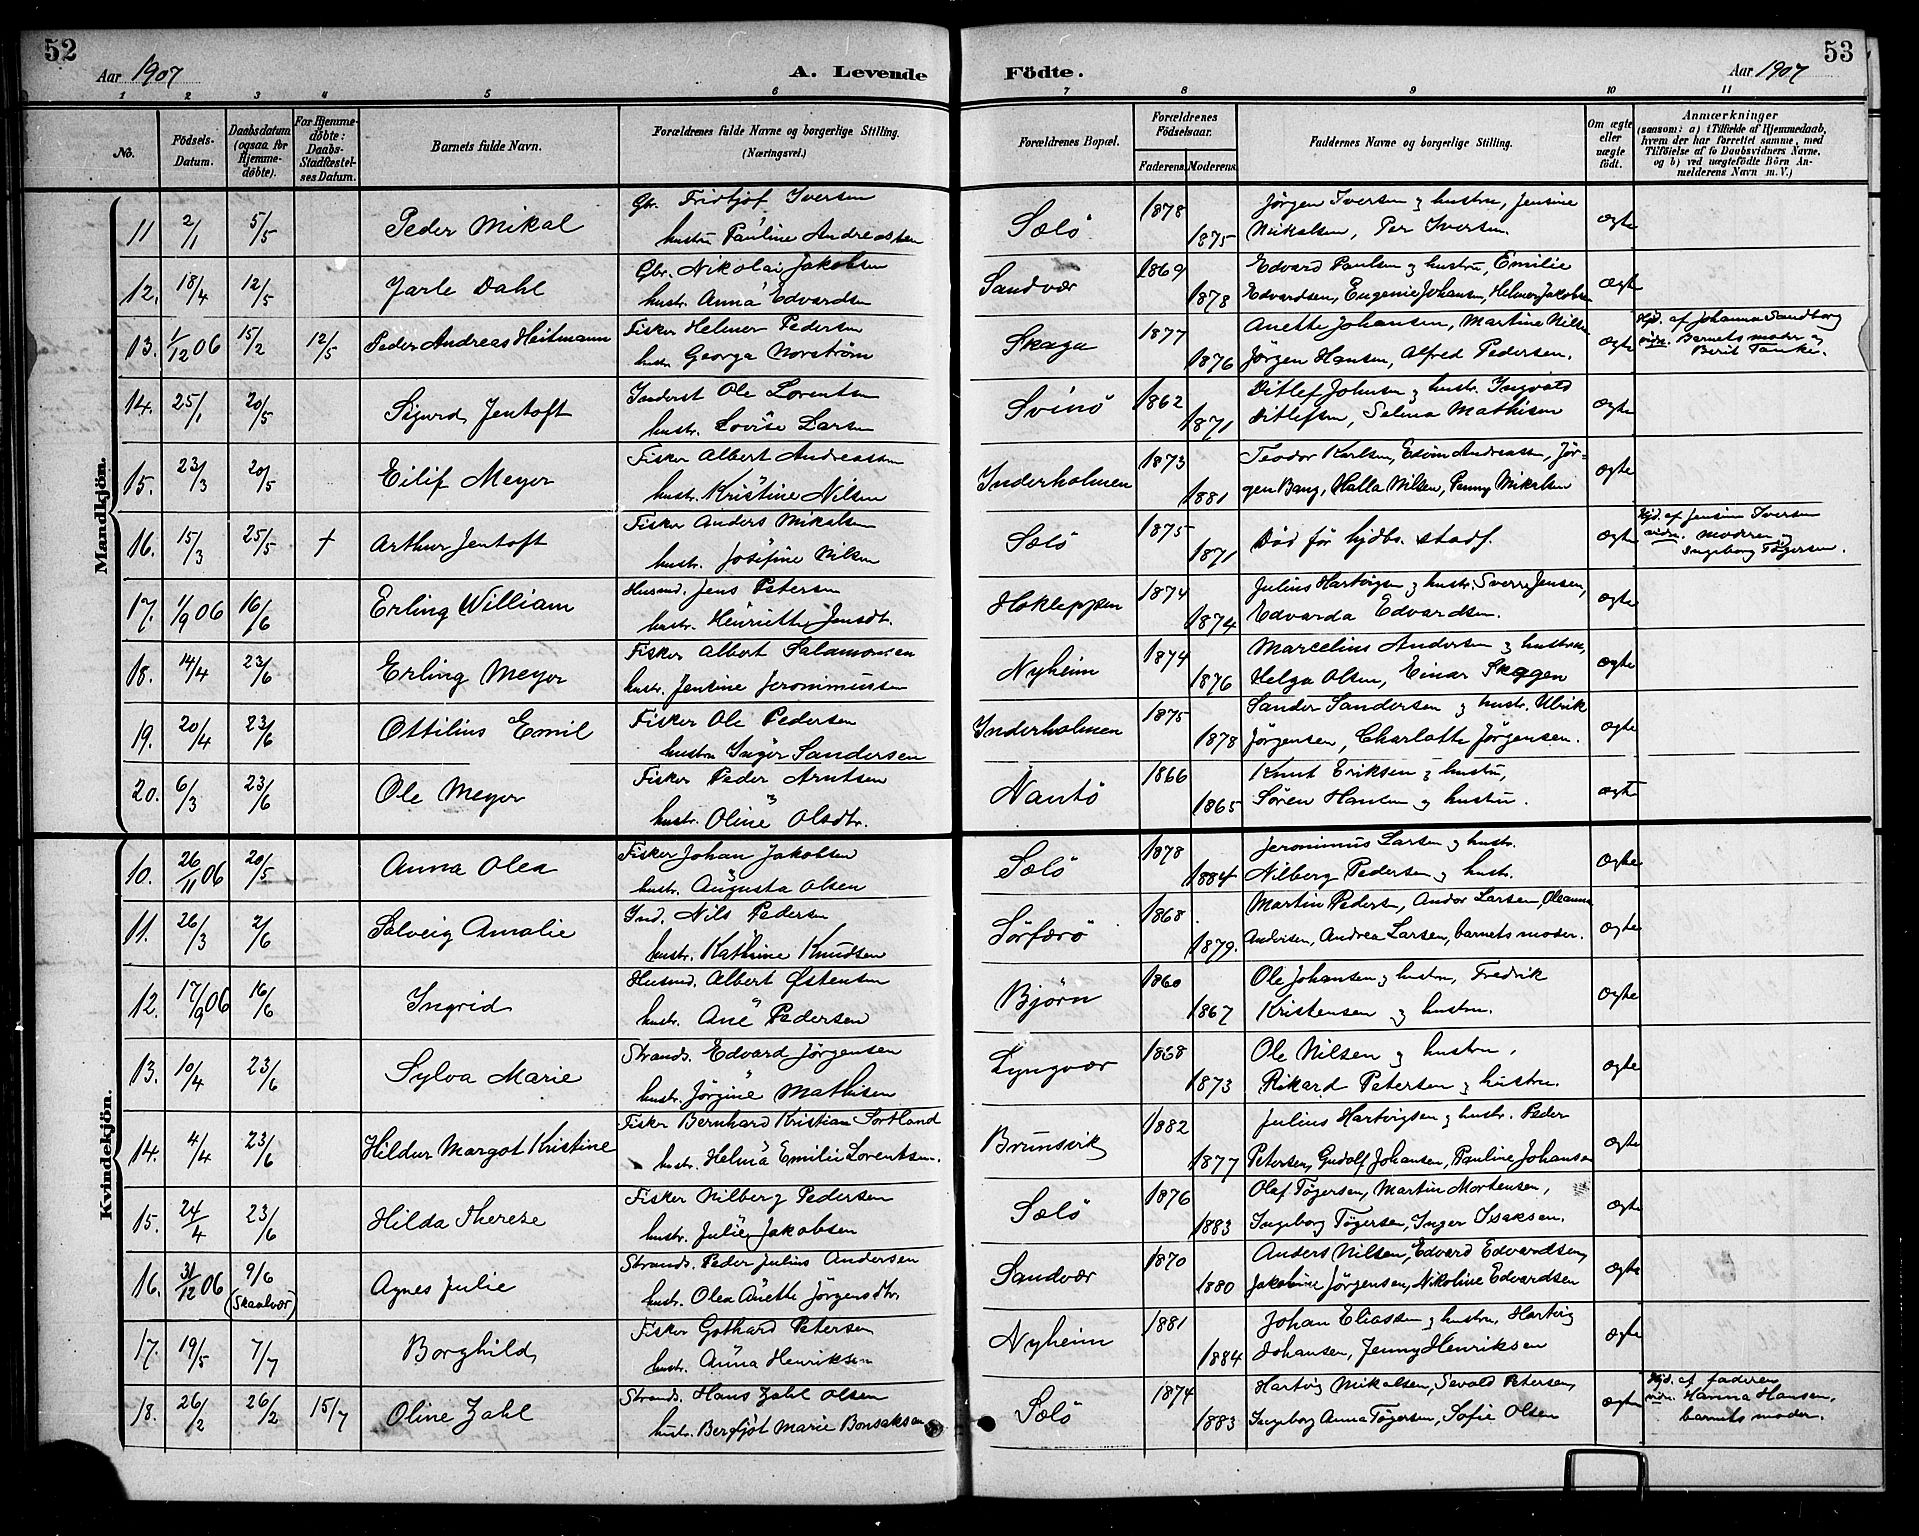 52
53
Aar 1907
A. Levende
Födte.
Aar 1907
1 2 3 4 5 6 7 8 9 10 11
No.
Födsels-Datum.
Daabsdatum (ogsaa for Hjemmedøbte).
For Hjemmedøbte: Daabs-Stadfæstelses Datum.
Barnets fulde Navn.
Forældrenes fulde Navne og borgerlige Stilling. (Næringsvei.)
Forældrenes Bopæl.
Forældrenes Födselsaar. Faderens. Moderens.
Faddernes Navne og borgerlige Stilling.
Om ægte eller uægte født.
Anmærkninger (sansom: a) i Tilfælde af Hjemmedaab, hvem der har forrettet samme, med Tilföielse af to Daabsvidners Navne, og b) ved uægtefödte Börn Anmelderens Navn m. V.)
Mandkjön.
11 2/1 5/5 Peder Mikal Gbr. Fridtjof Iversen Sælö 1878 Jørgen Iversen & hustru, Jensine ægte
hustru Pauline Andreassen 1875 Mikalsen, Per Iversen.
12. 18/4 12/5 Jarle Dahl Gbr. Nikolai Jakobsen Sandvær 1869 Edvard Paulsen & hustru, Emilie ægte
hustr. Anna Edvardsen 1878 Edvardsen, Eugenie Johansen, Helmer Jakobsen
13. 1/12 06 15/2 12/5 Peder Andreas Heitmann Fisker Helmer Pedersen Skaga 1877 Anette Johansen, Martine Nilsen ægte Hjd. af Johanna Sandborg
hustr. Georga Norstrøm 1876 Jørgen Hansen, Alfred Pedersen. vidn. Barnets moder og
Berit Tanke.
14. 25/1 20/5 Sigurd Jentoft Inderst Ole Lorentsen Svinö 1862 Ditlef Johnsen & hustr. Ingvald ægte
hustr. Lovise Larsen 1871 Ditlefsen, Selma Mathisen
15. 23/3 20/5 Eilif Meyer Fisker Albert Andreassen Inderholmen 1873 Teodor Karlsen, Edvin Andreassen, Jør- ægte
hustr. Kristine Nilsen 1881 gen Bang, Halla Nilsen, Penny Mikalsen
16. 15/3 25/5 + Arthur Jentoft Fisker Anders Mikalsen Sælö 1875 Död før hjdb. stadf. ægte Hjd. af Jensine Iversen
hustr. Josefine Nilsen 1871 vidn. moderen og
Ingeborg Tøgersen.
17. 1/9 06 16/6 Erling William Husmd. Jens Petersen Hokleppen 1874 Julius Hartvigsen & hustr. Sverre Jensen, ægte
hustr. Henriette Jensdt. 1874 Edvarda Edvardsen.
18. 14/4 23/6 Erling Meyer Fisker Albert Salamonsen Nyheim 1874 Marcelius Andersen & hustru, ægte
hustr. Jensine Jeronimussen 1876 Helga Olsen, Einar Skoggen
19. 20/4 23/6 Ottilius Emil Fisker Ole Pedersen Inderholmen 1875 Sander Sandersen & hustr. Ulrik ægte
hustru Inger Sandersen 1878 Jørgensen, Charlotte Jørgensen.
20. 6/3 23/6 Ole Meyer Fisker Peder Arntsen Nantö 1866 Knut Eriksen & hustru, ægte
hustr. Oline Olsdtr. 1865 Søren Hansen & hustru.
Kvindekjön.
10. 26/11 06 20/5 Anna Olea Fisker Johan Jakobsen Sælö 1878 Jeronimus Larsen & hustr. ægte
hustr. Augusta Olsen 1884 Nilberg Pedersen & hustr.
11. 26/3 2/6 Solveig Amalie Ind. Nils Pedersen Sörfærö 1868 Martin Peders, Andor Larsen, Oleanna ægte
hustr. Kathrine Knudsen 1879. Andersen, Andrea Larsen, barnets moder.
12. 17/9 06 16/6 Ingrid Husmd. Albert Østensen Bjørn 1860 Ole Johansen & hustru, Fredrik ægte
hustr. Ane Pedersen 1867 Kristensen & hustru.
13. 10/4 23/6 Sylva Marie Strands. Edvard Jørgensen Lyngvær 1868 Ole Nilsen & hustru, ægte
hustr. Jørgine Mathisen 1873 Rikard Petersen & hustru.
14. 4/4 23/6 Hildur Margot Kristine Fisker Bernhard Kristian Sortland Brunsvik 1882 Julius Hartvigsen & hustr. Peder ægte
hustr. Helma Emilie Lorentsen. 1877 Petersen, Gudolf Johansen, Pauline Johansen
15. 24/4 23/6 Hilda Therese Fisker Nilberg Pedersen Sælö 1876 Olaf Tøgersen, Martin Mortensen, ægte
hustr. Julie Jakobsen 1883 Ingeborg Tøgersen, Inger Isaksen.
16. 31/12 06 9/6 (Skaalvær) Agnes Julie Strands. Peder Julius Andersen Sandvær 1870 Anders Nilsen, Edvard Edvardsen, ægte
hustr. Olea Anette Jørgensdtr. 1880 Jakobine Jørgensen, Nikoline Edvardsen
17. 19/5 7/7 Borghild Fisker Gothard Petersen Nyheim 1881 Johan Eliassen & hustru, Hartvig ægte
hustr. Anna Henriksen 1884 Johansen, Jenny Henriksen
18. 26/2 26/2 15/7 Oline Zahl Strands. Hans Zahl Olsen Sælö 1874 Hartvig Mikalsen, Sevald Petersen, ægte Hjd. af faderen
hustr. Bergljot Marie Bonsaksen 1883 Ingeborg Anna Tøgersen, Sofie Olsen vidn. Hanna Hansen,
barnets moder.